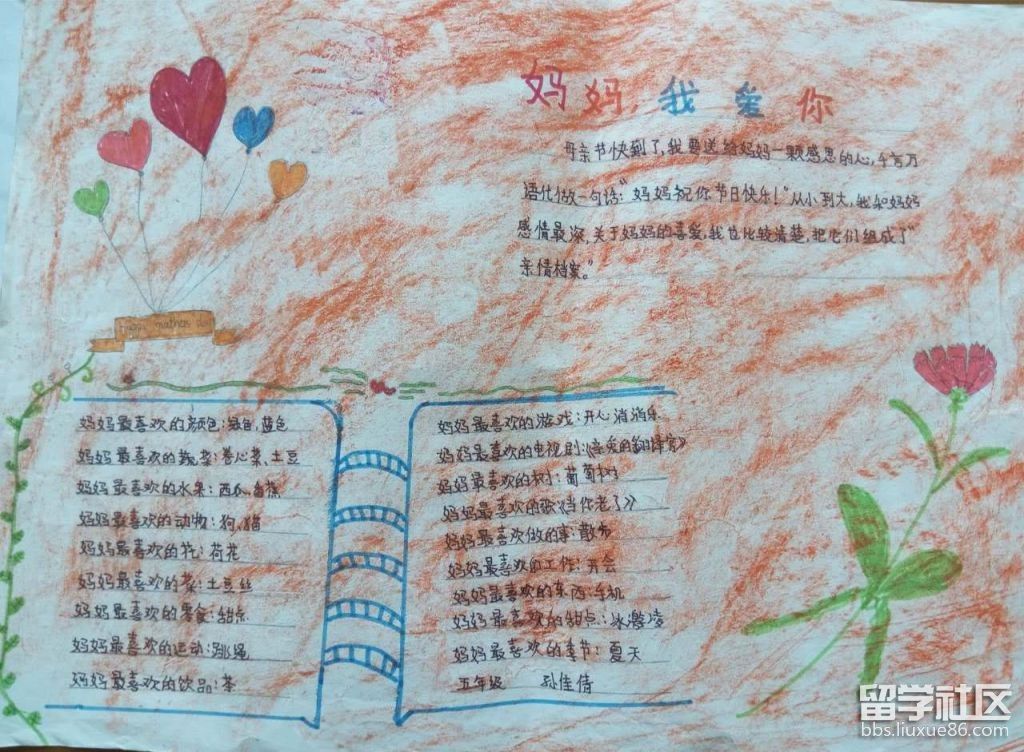 妈妈,我爱你
母亲节快到了,我要送给妈妈一颗感恩的心,千言万
语化做一句话:“妈妈祝你节日快乐!”从小到大,我和妈妈
感情最深,关于妈妈的喜爱,我也比较清楚,把它们组成了“
亲情档案。”
妈妈最喜欢的颜色:绿色,蓝色
妈妈最喜欢的蔬菜:卷心菜、土豆
妈妈最喜欢的水果:西瓜、香蕉
妈妈最喜欢的动物:狗、猫
妈妈最喜欢的花:荷花
妈妈最喜欢的菜:土豆丝
妈妈最喜欢的零食:甜点
妈妈最喜欢的运动:跳绳
妈妈最喜欢的饮品:茶
妈妈最喜欢的游戏:开心消消乐
妈妈最喜欢的电视剧:《亲爱的翻译官》
妈妈最喜欢的树:葡萄树
妈妈最喜欢的歌《当你老了》
妈妈最喜欢做的事:散步
妈妈最喜欢的工作:开会
妈妈最喜欢的东西:手机
妈妈最喜欢的甜点:冰激凌
妈妈最喜欢的季节:夏天
五年级 孙佳倩
留学社区
bbs.liuxue86.com